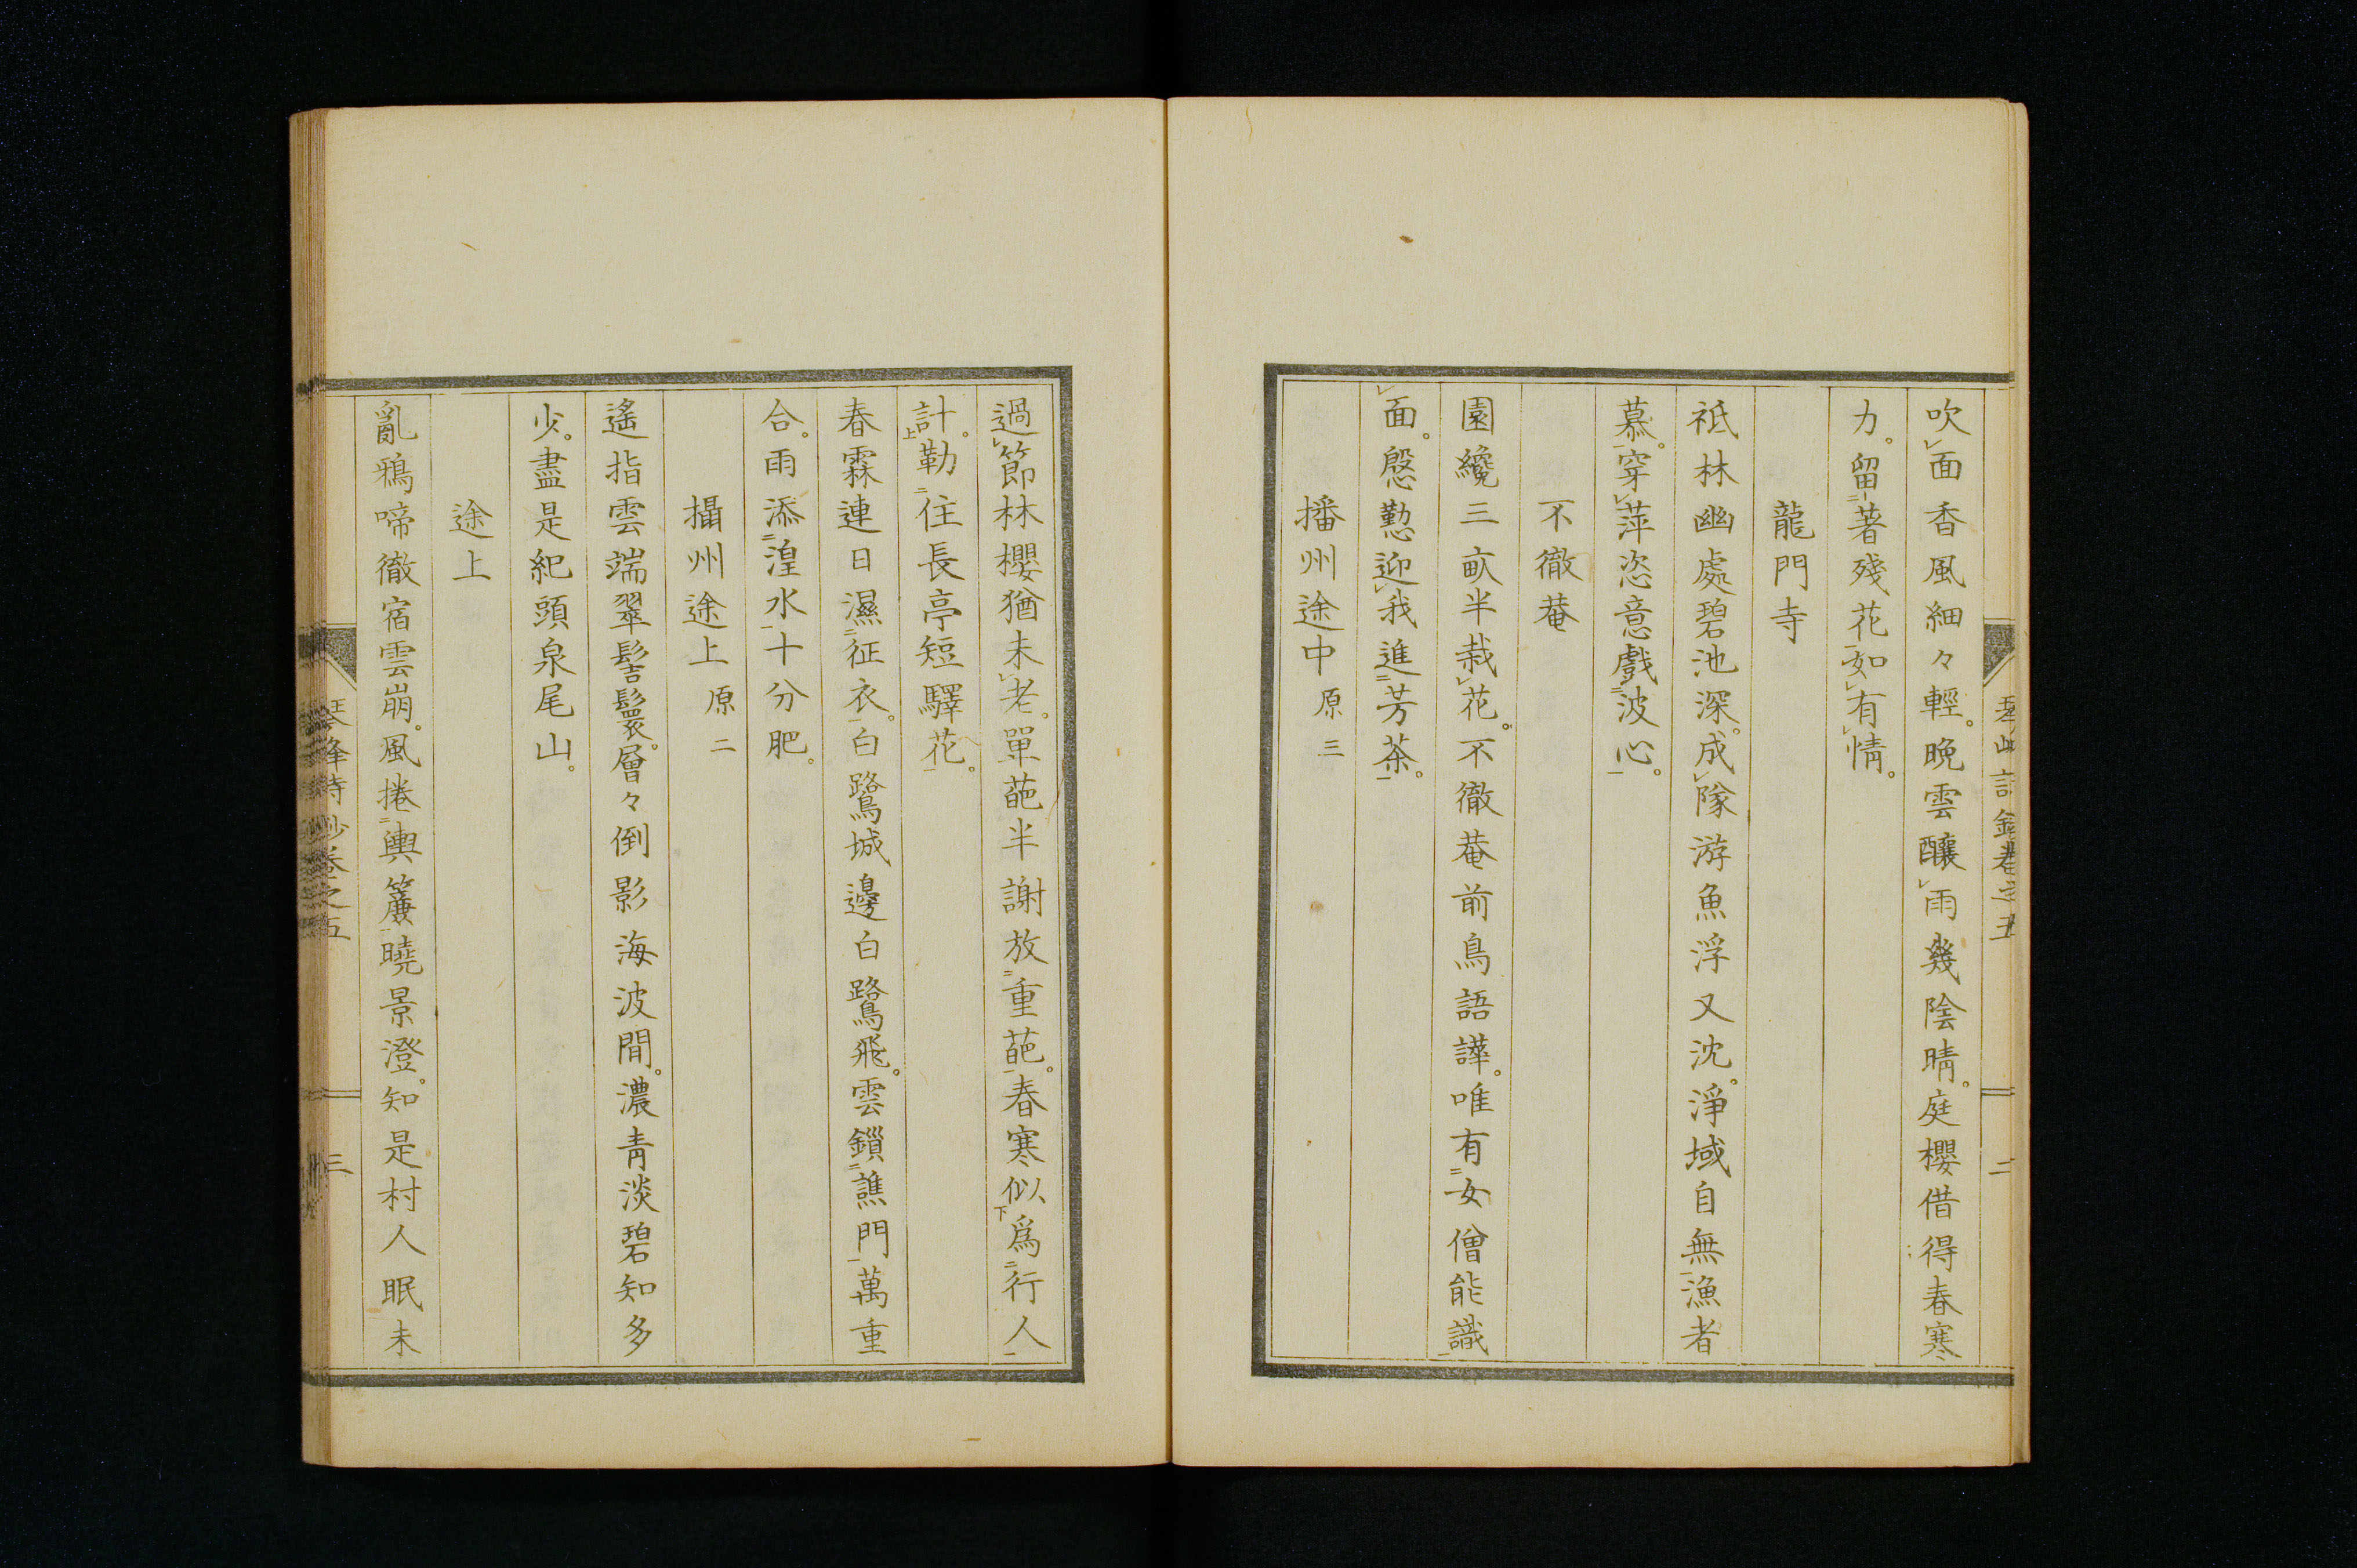 吹面香風細々輕。晚雲釀雨幾陰晴。庭櫻借得春寒
力。留著殘花如有情。
龍門寺
祇林幽處碧池深。成隊游魚浮又沈。淨域自無漁者
慕。穿萍恣意戲波心。
不徹菴
園纔三畝半栽花。不徹菴前鳥語譁。唯有女僧能識
面。慇懃迎我進芳茶。
播州途中 原三
過節林櫻猶未老。單葩半謝放重葩。春寒似爲行人
計。勒住長亭短驛花。
春霖連日濕征衣。白鷺城邊白鷺飛。雲鎻譙門萬重
合。雨添湟水十分肥。
攝州途上 原二
遙指雲端翠髻鬟。層々倒影海波間。濃青淡碧知多
少。盡是紀頭泉尾山。
途上
亂鴉啼徹宿雲崩。風捲輿簾曉景澄。知是村人眠未
琴峰詩鈔卷之五
三